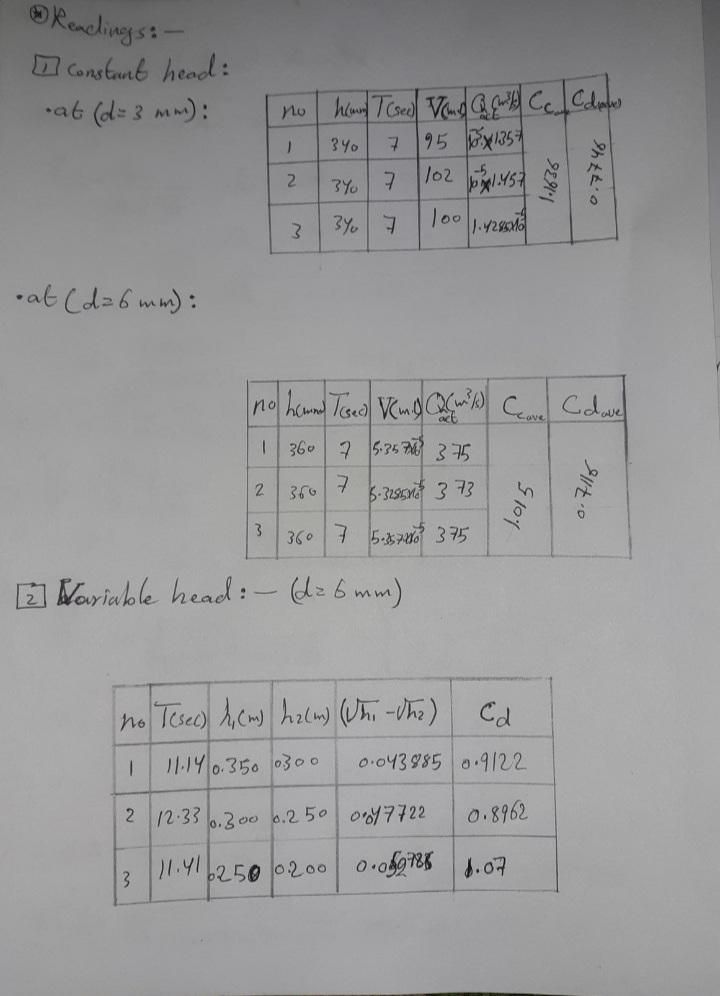 Readings:-
1 Constant head:
•at (d=3 mm):
no h(mm) T(sec) V(ml) Qact(m³/s) Cc ave Cd ave
1 340 7 95 10⁻⁵×1.357
2 340 7 102 10⁻⁵×1.457
3 340 7 100 1.4285×10⁻⁵
1.636
0.7746
•at (d=6 mm):
no h(mm) T(sec) V(ml) Qact(m³/s) Cc ave Cd ave
1 360 7 5.357×10⁻⁵ 375
2 360 7 5.3285×10⁻⁵ 373
3 360 7 5.357×10⁻⁵ 375
1.015
0.7118
2 Variable head:- (d=6 mm)
no T(sec) h₁(m) h₂(m) (√h₁-√h₂) Cd
1 11.14 0.350 0300 0.043885 0.9122
2 12.33 0.300 0.250 0.047722 0.8962
3 11.41 0250 0.200 1.07